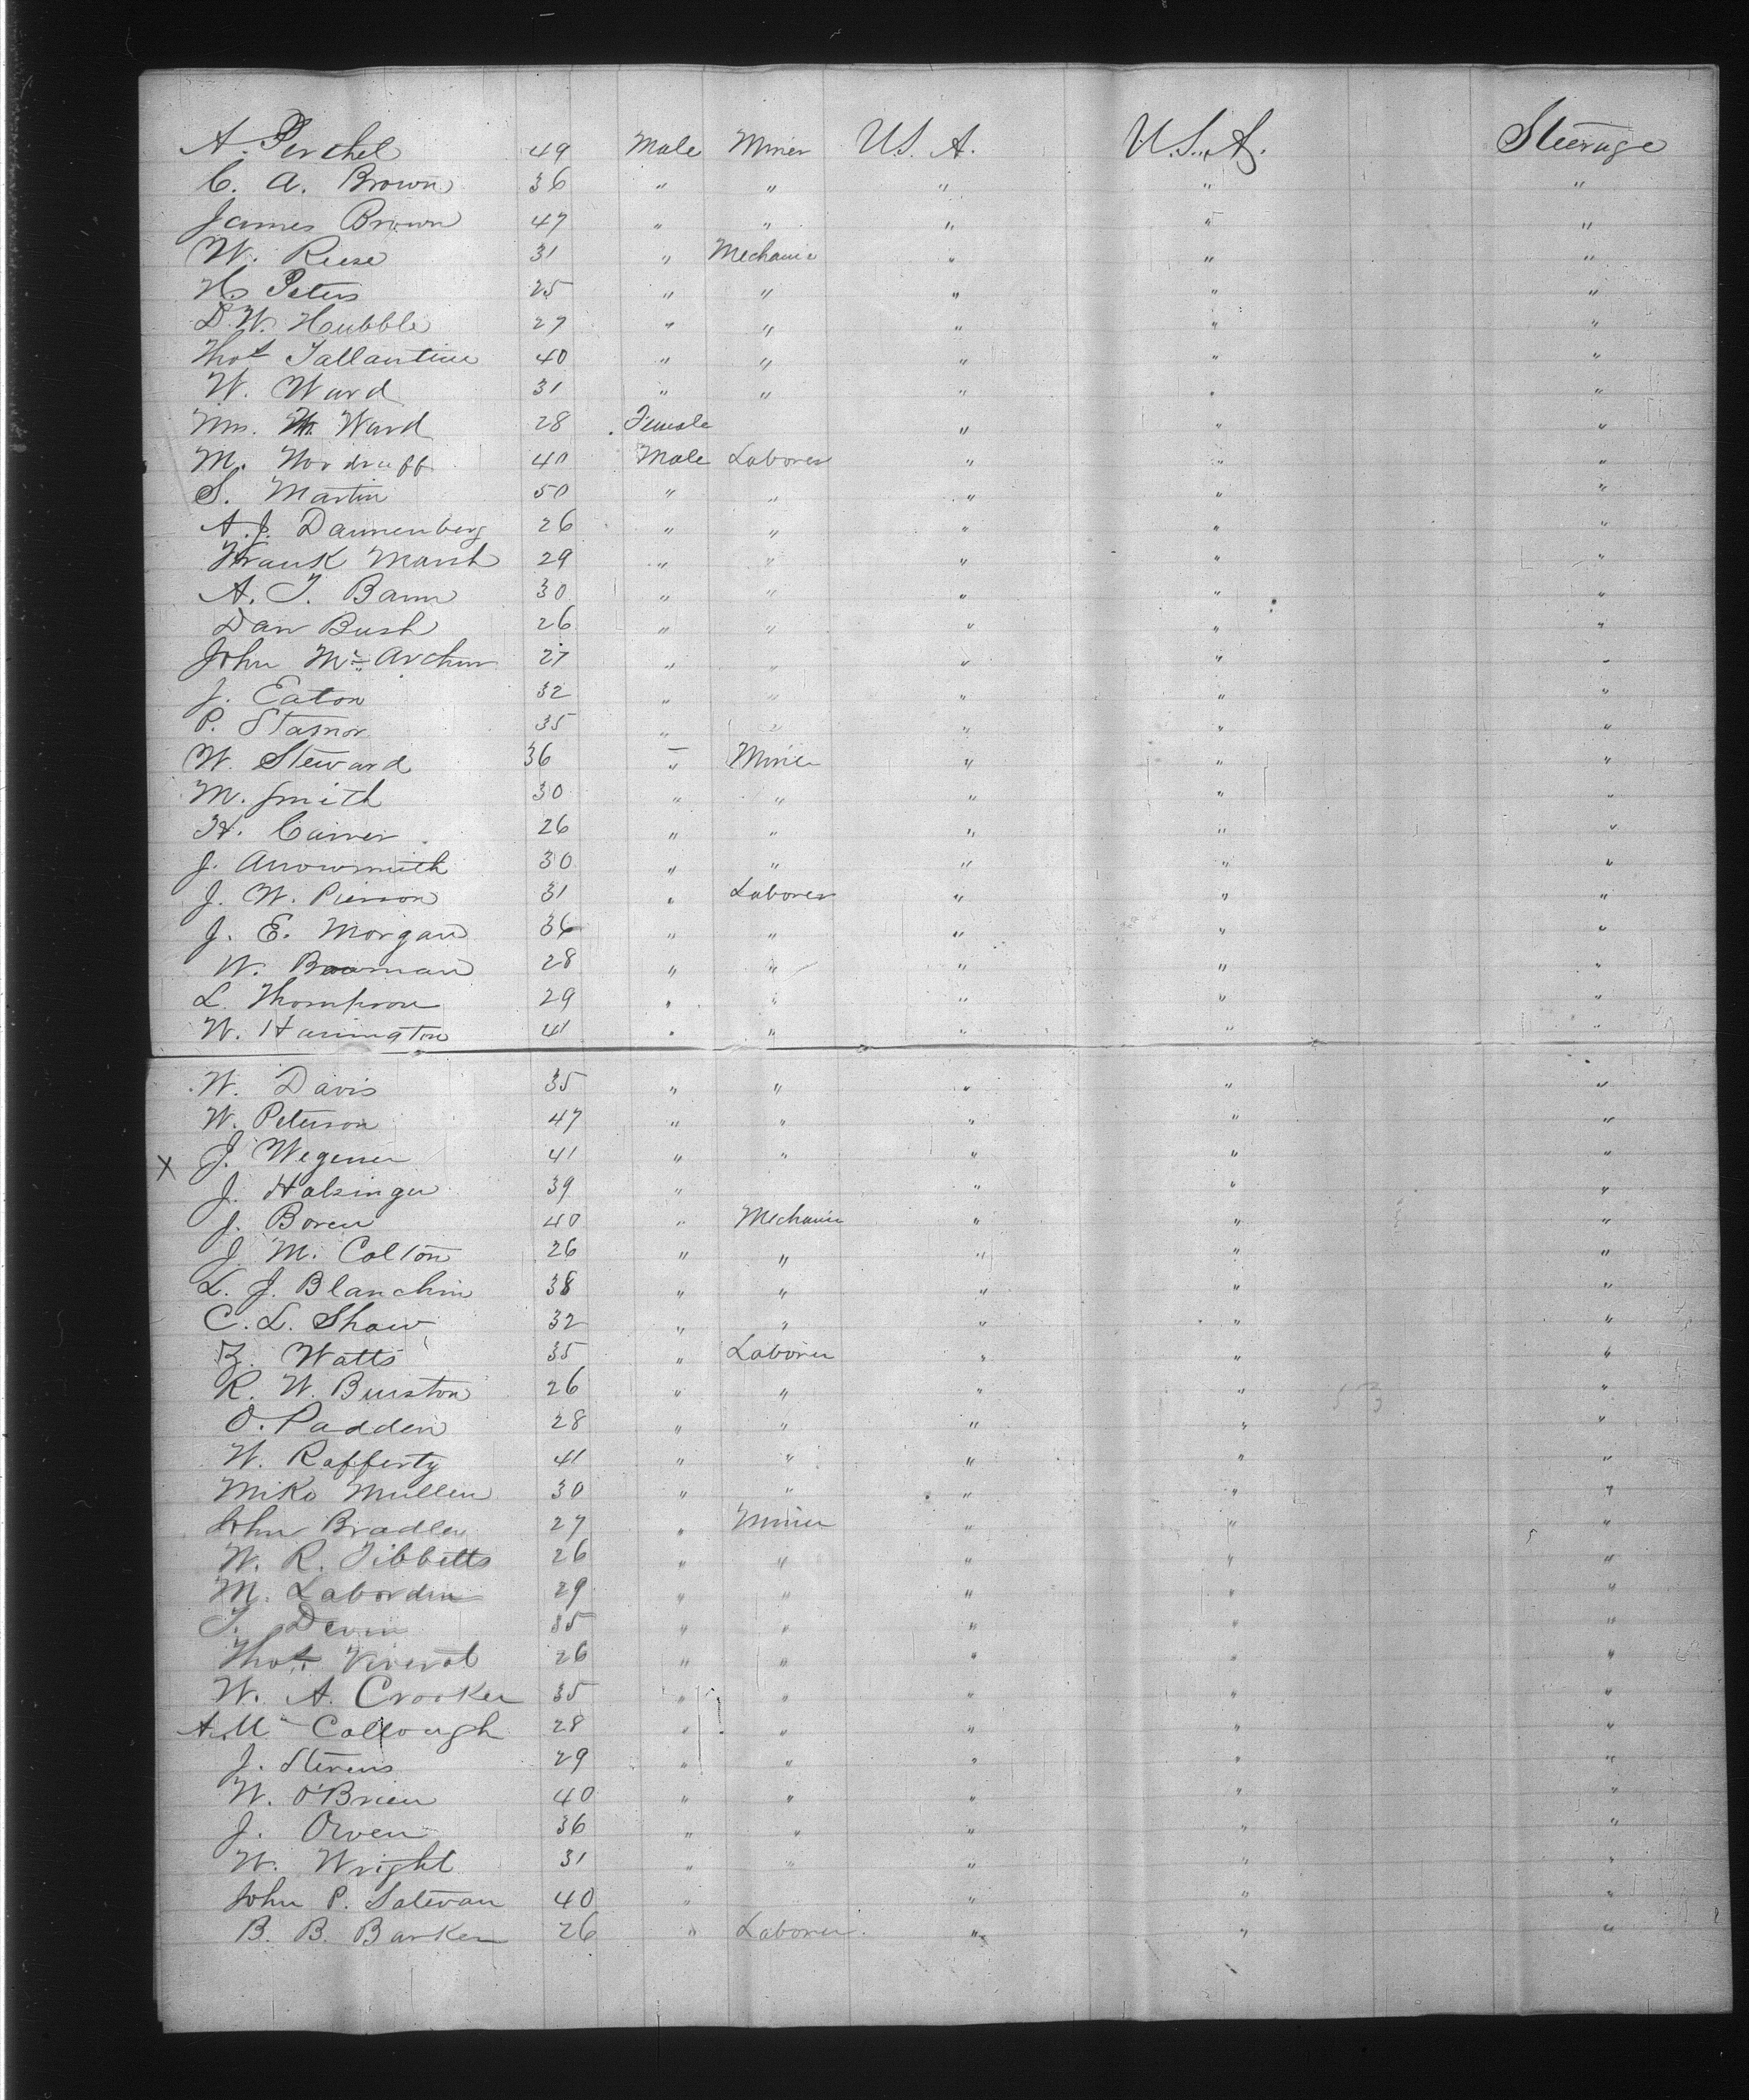 A. Perchel 49 Male Miner U.S.A. U.S.A. Steerage
C. A. Brown 36 " " " " "
James Brown 47 " " " " "
W. Reese 31 " Mechanic " " "
H. Peters 25 " " " " "
D. W. Hubble 27 " " " " "
Thos Tallantine 40 " " " " "
W. Ward 31 " " " " "
Mrs. W. Ward 28 Female " " "
M. Woodruff 40 Male Laborer " " "
S. Martin 50 " " " " "
A. J. Dannenberg 26 " " " " "
Frank Marsh 29 " " " " "
A. T. Bann 30 " " " " "
Dan Bush 26 " " " " "
John Mc Archer 27 " " " " "
J. Eaton 32 " " " " "
P. 35 " " " " "
W. Steward 36 " Miner " " "
M. Smith 30 " " " " "
H. Carver 26 " " " " "
J. Arrowsmith 30 " " " " "
J. W. Pierson 31 " Laborer " " "
J. E. Morgan 36 " " " " "
W. Bowman 28 " " " " "
L. Thompson 29 " " " " "
W. Harrington 41 " " " " "
W. Davis 35 " " " " "
W. Peterson 47 " " " " "
X J. Wegener 41 " " " " "
J. Halsinger 39 " " " "
J. Boren 40 " Mechanic " " "
J. M. Colton 26 " " " " "
L. J. Blanchin 38 " " " " "
C. L. Shaw 32 " " " " "
Z. Watts 35 " Laborer " " "
R. W. Burston 26 " " " " "
O. Padden 28 " " " " "
W. Rafferty 41 " " " " "
Mike Mullen 30 " " " " "
John Bradley 27 " Miner " " "
W. R. Tibbetts 26 " " " " "
M. Laborden 29 " " " " "
T. 35 " " " " "
Thos 26 " " " " "
W. A. Crooker 35 " " " " "
A. Mc Collough 28 " " " " "
J. Stevens 29 " " " " "
W. O'Brien 40 " " " " "
J. Owen 36 " " " " "
W. Wright 31 " " " " "
John P. Salevan 40 " " " "
B. B. Barker 26 " Laborer " " "